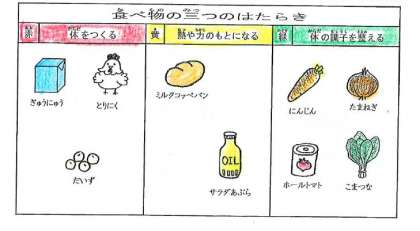 食べ物の三つのはたらき
赤 体をつくる
黄 熱や力のもとになる
緑 体の調子を整える
ぎゅうにゅう
とりにく
だいず
ミルクコッペパン
OIL
サラダあぶら
にんじん
たまねぎ
ホールトマト
こまつな